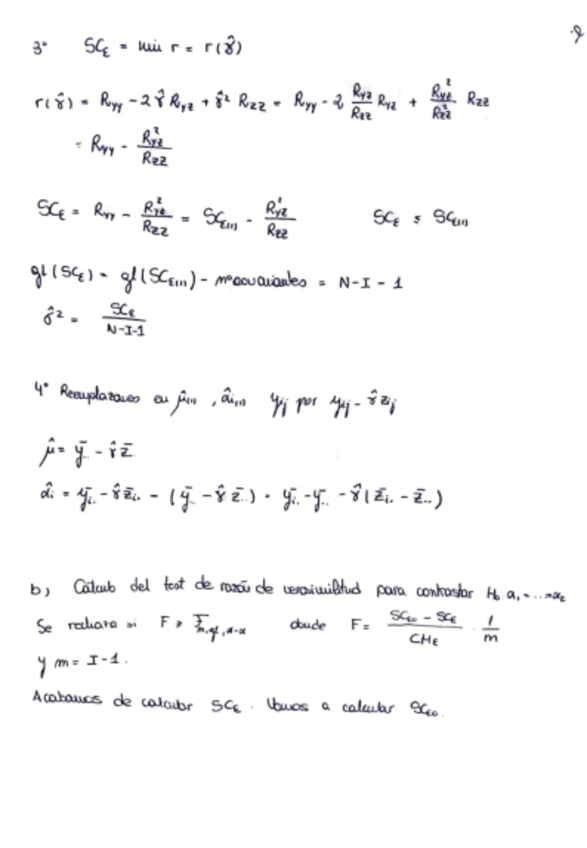 3º SC_E = min r = r(γ̂)
r(γ̂) = R_yy - 2 γ̂ R_yz + γ̂² R_zz = R_yy - 2 R_yz/R_zz R_yz + R²_yz/R²_zz R_zz
= R_yy - R²_yz/R_zz
SC_E = R_yy - R²_yz/R_zz = SC_E(1) - R²_yz/R_zz SC_E ≤ SC_E(1)
gl(SC_E) = gl(SC_E(1)) - nº covariantes = N-I-1
σ̂² = SC_E/N-I-1
4º Reemplazamos en μ̂(1), α̂i(1) yij por yij - γ̂ zij
μ̂ = ȳ.. - γ̂ z̄..
α̂i = ȳi. - γ̂ z̄i. - (ȳ.. - γ̂ z̄..) = ȳi. - ȳ.. - γ̂(z̄i. - z̄..)
b) Cálculo del test de razón de verosimilitud para contrastar H₀ α₁=...=α_I
Se rechaza si F ≥ F_m,gl,1-α donde F = SC_E0 - SC_E/CM_E · 1/m
y m = I-1.
Acabamos de calcular SC_E. Vamos a calcular SC_E0.